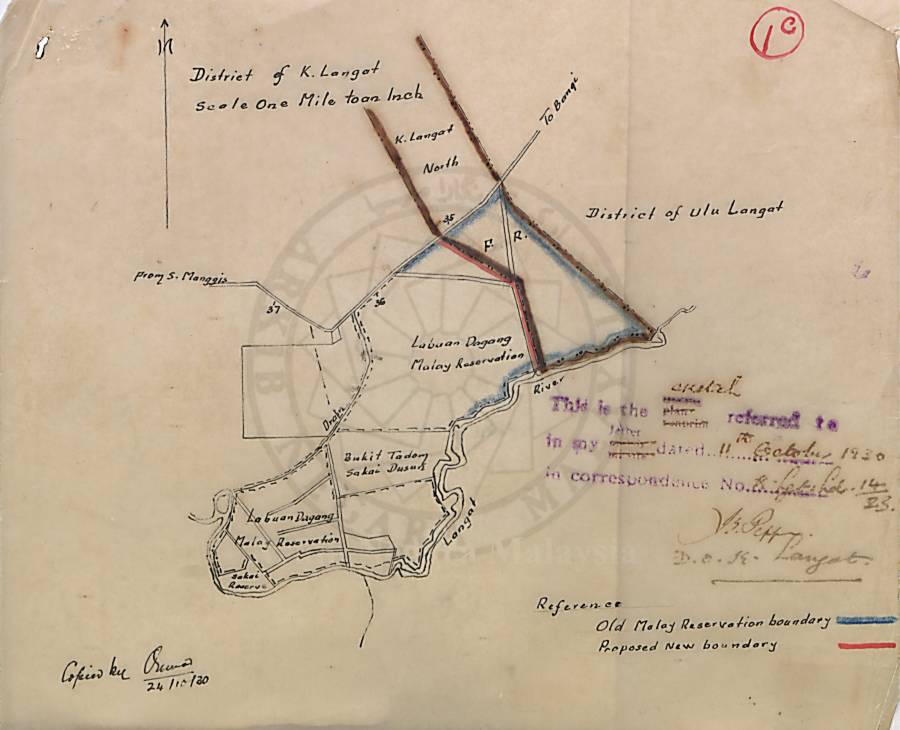 1c
District of K. Langat
Scale One Mile to an Inch
To Bangi
K. Langat
North
District of Ulu Langat
35
F. R.
From S. Manggis
37
36
Labuan Dagang
Malay Reservation
River
Drain
Bukit Tadom
Sakai Dusun
Langat
Labuan Dagang
Malay Reservation
Sakai
Reserve
This is the plan referred to
in my letter dated 11th October 1930
in correspondence No. 14/23.
D.O. K. Langat.
Reference
Old Malay Reservation boundary
Proposed New boundary
Copied by
24/10/30